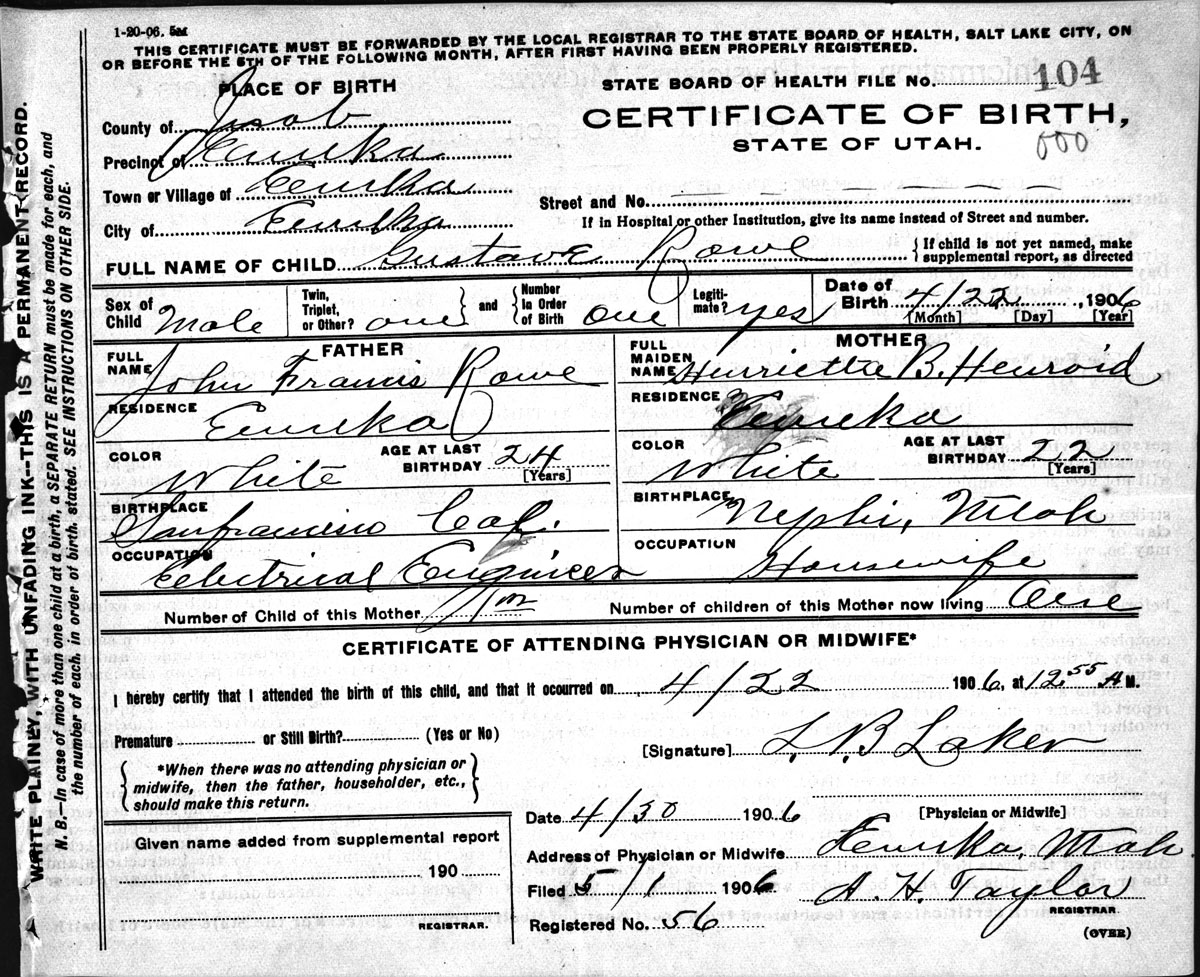 1-20-06.
THIS CERTIFICATE MUST BE FORWARDED BY THE LOCAL REGISTRAR TO THE STATE BOARD OF HEALTH, SALT LAKE CITY, ON
OR BEFORE THE 5TH OF THE FOLLOWING MONTH, AFTER FIRST HAVING BEEN PROPERLY REGISTERED.
PLACE OF BIRTH
STATE BOARD OF HEALTH FILE No. 104
CERTIFICATE OF BIRTH,
STATE OF UTAH.
000
County of Juab
Precinct of Eureka
Town or Village of Eureka
City of Eureka
Street and No.
If in Hospital or other Institution, give its name instead of Street and number.
FULL NAME OF CHILD Gustave Rowe
{If child is not yet named, make
supplemental report, as directed
Sex of Child Male
Twin, Triplet, or Other? one } and { Number In Order of Birth one
Legiti-mate? yes
Date of Birth 4/22, 1906
[Month] [Day] [Year]
FATHER
FULL NAME John Francis Rowe
RESIDENCE Eureka
COLOR White
AGE AT LAST BIRTHDAY 24 [Years]
BIRTHPLACE Sanfrancisco Cal.
OCCUPATION Eelectrical Engineer
MOTHER
FULL MAIDEN NAME Henriettae B. Henroid
RESIDENCE Eureka
COLOR White
AGE AT LAST BIRTHDAY 22 [Years]
BIRTHPLACE Nephi, Utah
OCCUPATION Housewife
Number of Child of this Mother
Number of children of this Mother now living One
CERTIFICATE OF ATTENDING PHYSICIAN OR MIDWIFE*
I hereby certify that I attended the birth of this child, and that it occurred on 4/22 1906, at 12.55 A M.
Premature or Still Birth? (Yes or No)
[Signature] L. B Laker
{ *When there was no attending physician or
midwife, then the father, householder, etc.,
should make this return. }
[Physician or Midwife]
Date 4/30 1906
Given name added from supplemental report
190
REGISTRAR.
Address of Physician or Midwife Eureka, Utah
Filed 5/1 1906
A. H. Taylor
REGISTRAR.
Registered No. 56
(OVER)
WRITE PLAINLY, WITH UNFADING INK--THIS IS A PERMANENT RECORD.
N. B.—In case of more than one child at a birth, a SEPARATE RETURN must be made for each, and
the number of each, in order of birth, stated. SEE INSTRUCTIONS ON OTHER SIDE.